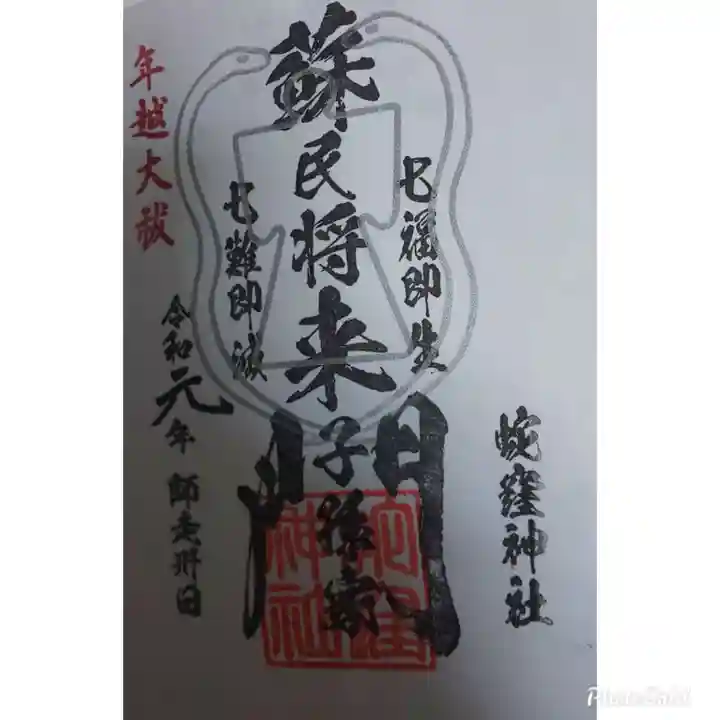 蛇窪神社
七福即生
蘇民将来
子孫家門
七難即滅
年越大祓
令和元年師走卅日
蛇窪神社